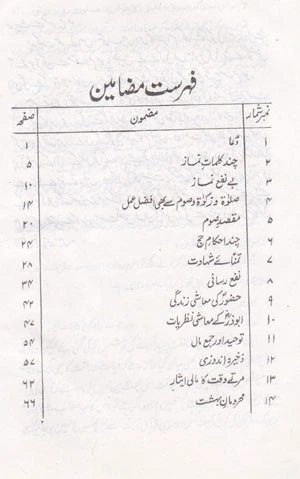 فہرست مضامین
نمبر شمار مضمون صفحہ
۱ دعا ۱
۲ چند کلمات نماز ۵
۳ بے نفع نماز ۱۰
۴ صلوٰۃ و زکوٰۃ و صوم سے بھی افضل عمل ۱۴
۵ مقصد صوم ۲۰
۶ چند احکام حج ۲۴
۷ تمنائے شہادت ۲۸
۸ نفع رسانی ۳۴
۹ حضورؐ کی معاشی زندگی ۴۲
۱۰ ابوذرؓ کے معاشی نظریات ۴۷
۱۱ توحید اور جمع مال ۵۴
۱۲ ذخیرہ اندوزی ۵۷
۱۳ مرتے وقت کا مالی ایثار ۶۲
۱۴ محرمان بہشت ۶۶